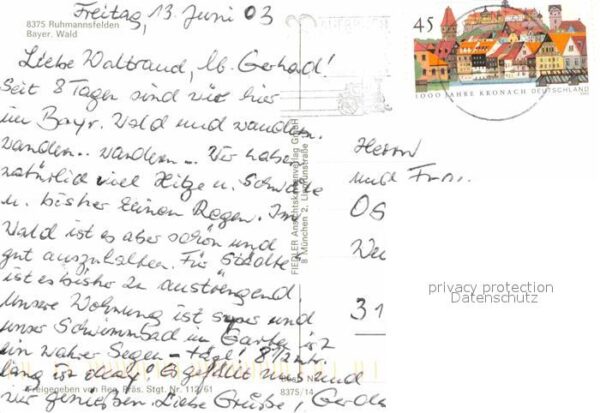 Freitag, 13. Juni 03
8375 Ruhmannsfelden
Bayer. Wald
Liebe Waltraud, lb. Gerhard!
Seit 8 Tagen sind wir hier
im Bayr. Wald und wandern.
wandern.. wandern... Wir haben
natürlich viel Hitze u. Schwüle
u. bisher keinen Regen. Im
Wald ist es aber schön und
gut auszuhalten. Für Städte
ist es bisher zu anstrengend
Unsere Wohnung ist super und
unser Schwimmbad im Garten ist
ein wahrer Segen - tägl.
lang ist es gefällt uns und
wir genießen. Liebe Grüße, Gerda
Freigegeben von Reg. Präs. Stgt. Nr. 112/61
8375/14
FIEDLER Ansichtskartenverlag GmbH
8 München 2,
45
1000 JAHRE KRONACH DEUTSCHLAND
Herrn
und Frau
OS
31
privacy protection
Datenschutz